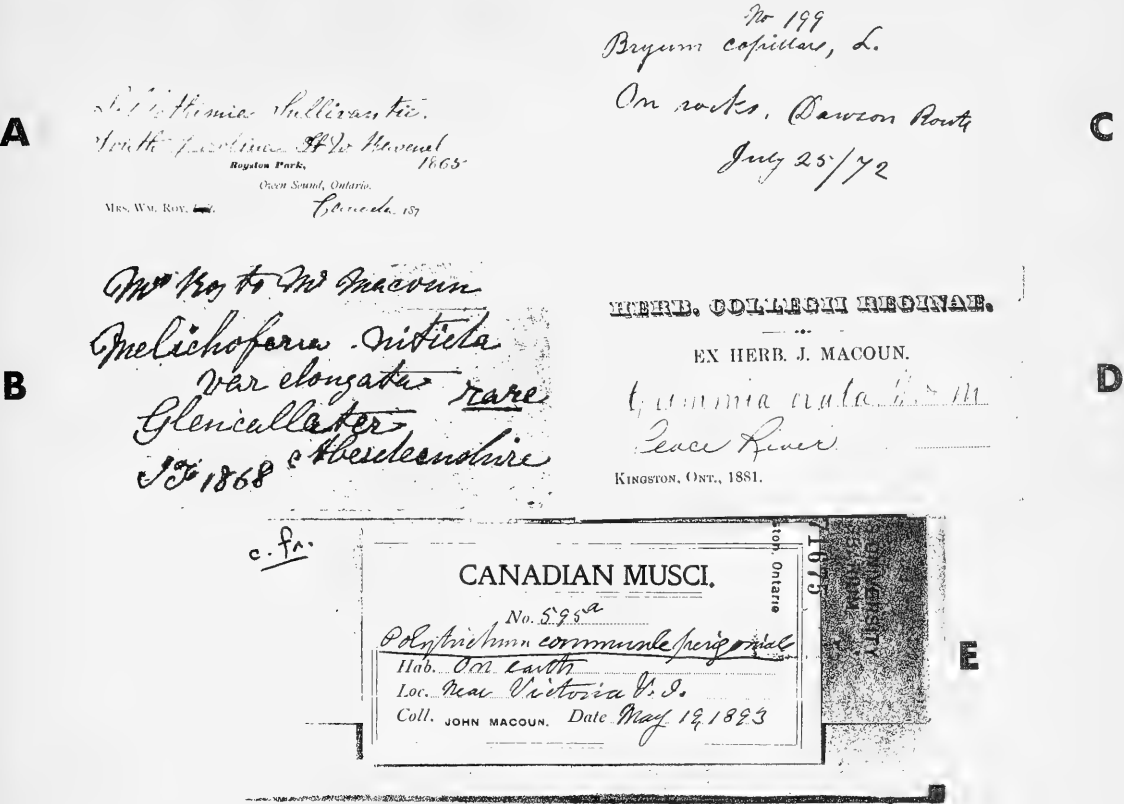 A
Sullivantii.
South Carolina H W Ravenel
1865
Royston Park,
Owen Sound, Ontario.
MRS. WM. ROY.
Canada 187
No 199
Bryum capillare, L.
On rocks, Dawson Route
July 25/72
C
B
Mrs Roy to Mr Macoun
Melichoferia nitida
var elongata rare
Glencallater
Aberdeenshire
JF 1868
HERB. COLLEGII REGINAE.
EX HERB. J. MACOUN.
Grimmia
Peace River
KINGSTON, ONT., 1881.
D
c. fr.
CANADIAN MUSCI.
No. 595a
Polytrichum commune perigoniale
Hab. On earth
Loc. Near Victoria V. I.
Coll. JOHN MACOUN. Date May 19, 1893
ston, Ontario
71675
UNIVERSITY
E